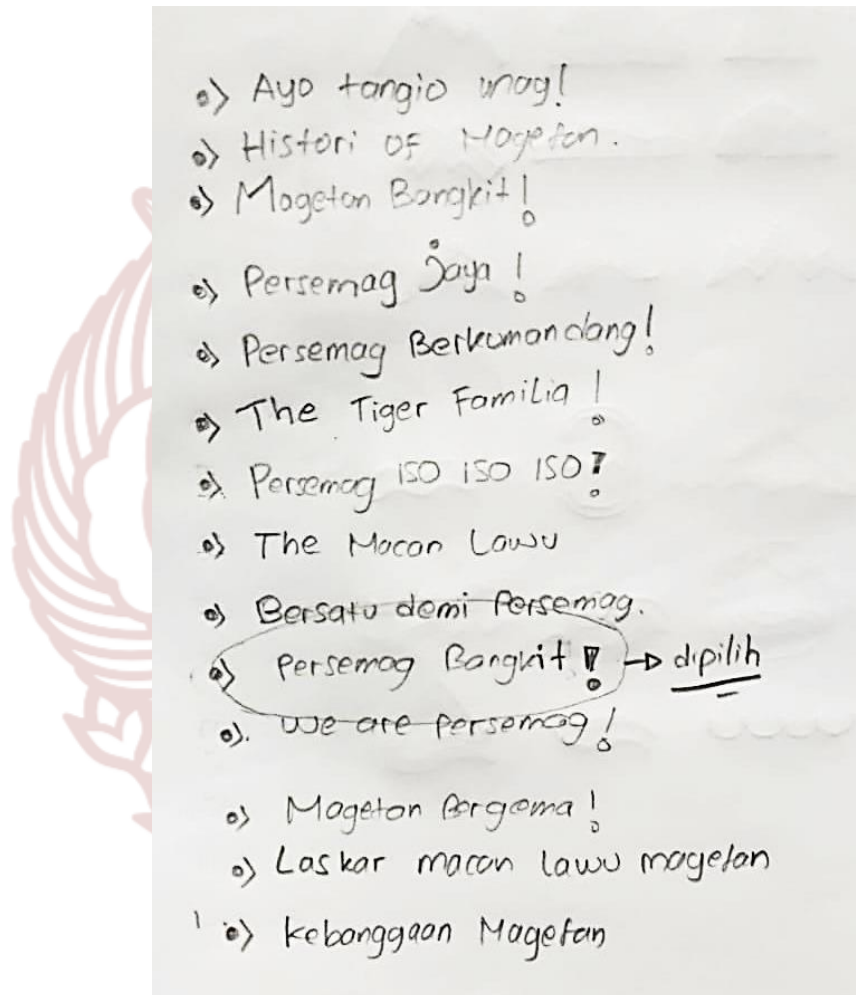 •) Ayo tangio mag!
•) Histori OF Magetan.
•) Magetan Bangkit!
•) Persemag Jaya!
•) Persemag Berkumandang!
•) The Tiger Familia!
•) Persemag ISO ISO ISO!
•) The Macan Lawu
•) Bersatu demi Persemag.
•) Persemag Bangkit! → dipilih
•). We are persemag!
•) Magetan Bergema!
•) Laskar macan lawu magetan
•) kebanggaan Magetan